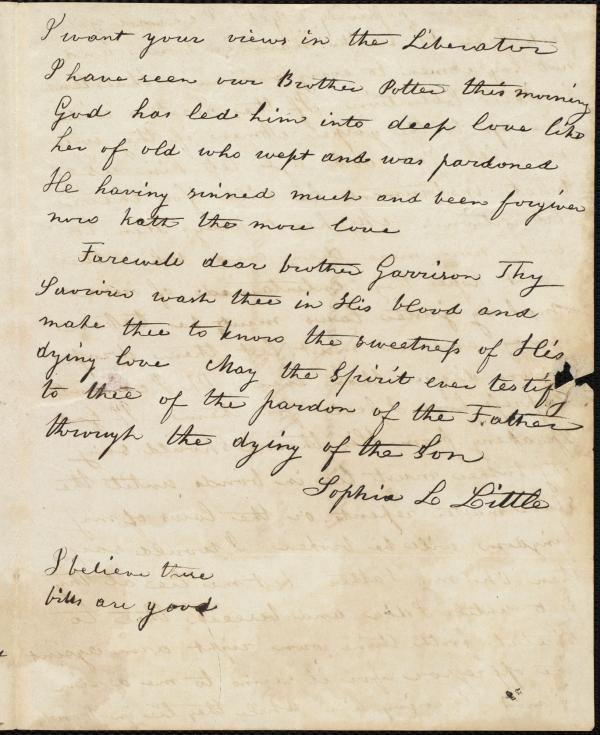 I want your views in the Liberator
I have seen our Brother Potter this morning
God has led him into deep love like
her of old who wept and was pardoned
He having sinned much and been forgiven
now hath the more love
Farewell dear brother Garrison Thy
Saviour wash thee in His blood and
make thee to know the sweetness of His
dying love May the Spirit ever testify
to thee of the pardon of the Father
through the dying of the Son
Sophia L Little
I believe these
bills are good